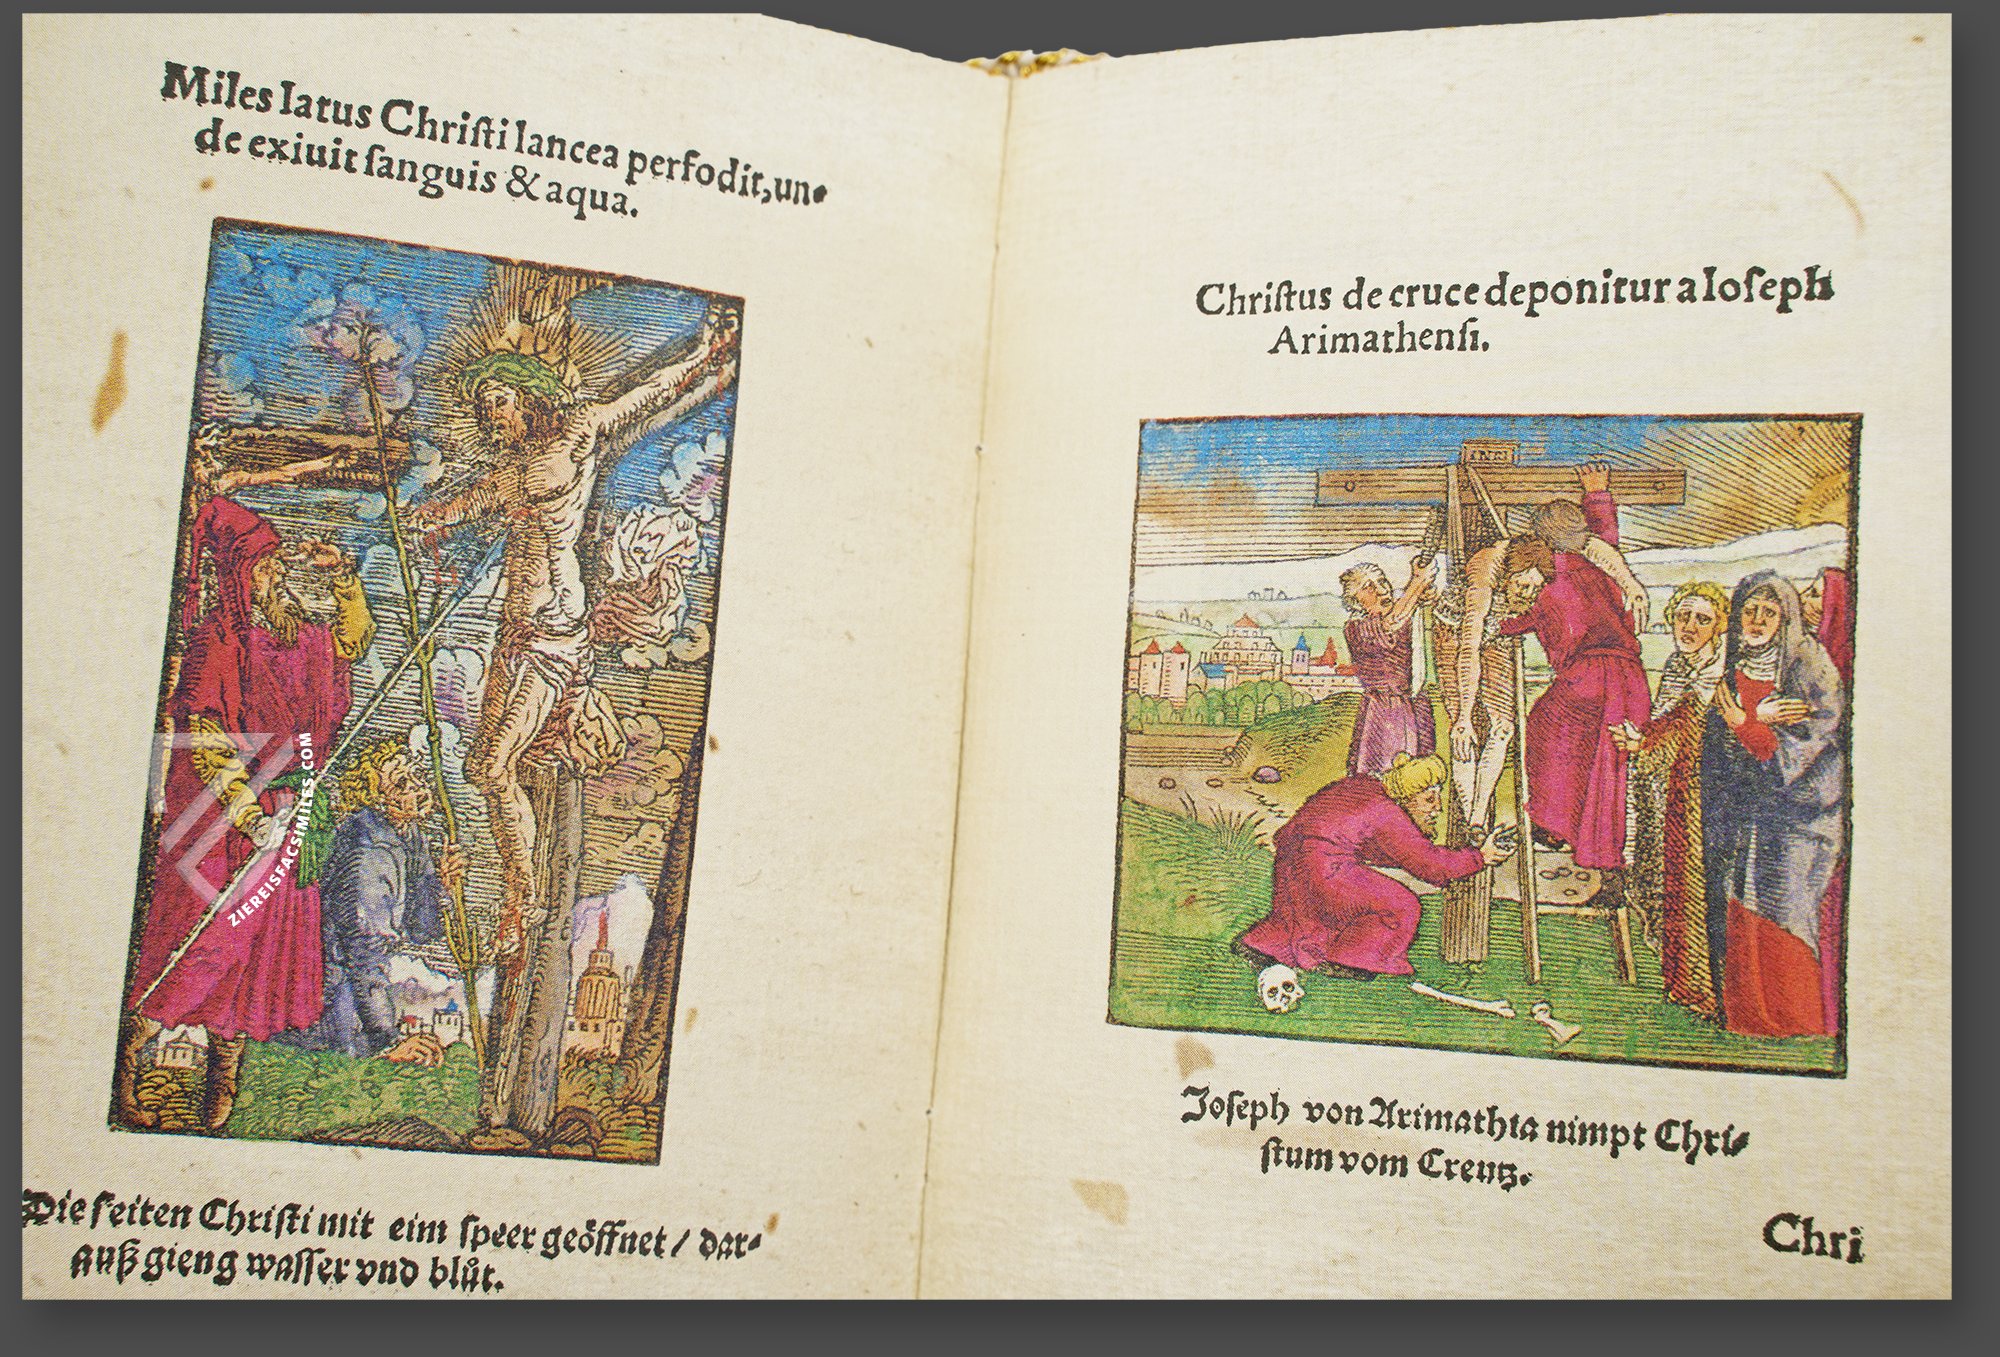 Miles latus Chriſti lancea perfodit, un-
de exiuit ſanguis & aqua.
Die ſeiten Chriſti mit eim ſpeer geöffnet / dar-
auß gieng waſſer vnd blůt.
ZIEREISFACSIMILES.COM
Chriſtus de cruce deponitur a Ioſeph
Arimathenſi.
INRI
Joſeph von Arimathia nimpt Chri-
ſtum vom Creutz.
Chri